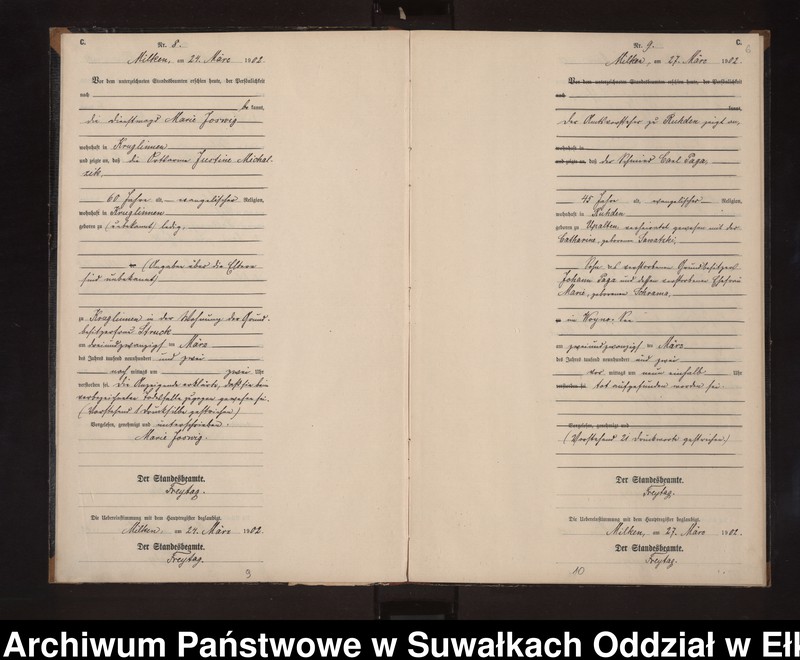 C.
Nr. 8.
Milken, am 24. März 1902.
Vor dem unterzeichneten Standesbeamten erschien heute, der Persönlichkeit
nach
be kannt,
die Dienstmagd Marie Joswig
wohnhaft in Kruglinnen
und zeigte an, daß die Ortsarme Justine Michal-
zik,
60 Jahre a. evangelischer Religion,
wohnhaft in Kruglinnen
geboren zu (unbekannt) ledig,
(Angaben über die Eltern
sind unbekannt)
zu Kruglinnen in der Wohnung der Grund-
besitzerfrau Struck
am dreiundzwanzigsten März
des Jahres tausend neunhundert und zwei
nach mittags um zwei Uhr
verstorben sei. Die Anzeigende erklärte, daß sie bei
vorbezeichneten Todesfalle zugegen gewesen sei.
(Vorstehend 1 Drucksilbe gestrichen)
Vorgelesen, genehmigt und unterschrieben.
Marie Joswig.
Der Standesbeamte.
Freytag.
Die Uebereinstimmung mit dem Hauptregister beglaubigt.
Milken, am 24. März 1902.
Der Standesbeamte.
Freytag.
9
Nr. 9.
C.
6
Milken, am 27. März 1902.
Vor dem unterzeichneten Standesbeamten erschien heute, der Persönlichkeit
nach
kannt,
Der Amtsvorsteher zu Ruhden zeigt an,
wohnhaft in
und zeigte an, daß der Schmied Carl Paga,
45 Jahr a. evangelischer Religion,
wohnhaft in Ruhden
geboren zu Upalten verheiratet gewesen mit der
Catharina, geborenen Sanatzki,
Sohn des verstorbenen Grundbesitzers
Johann Paga und dessen verstorbener Ehefrau
Marie, geborenen Schrama,
zu im Woyno-See
am zweiundzwanzigsten März
des Jahres tausend neunhundert und zwei
vor mittags um neun einhalb Uhr
verstorben sei. tot aufgefunden worden sei
Vorgelesen, genehmigt und
(Vorstehend 21 Druckworte gestrichen)
Der Standesbeamte.
Freytag.
Die Uebereinstimmung mit dem Hauptregister beglaubigt.
Milken, am 27. März 1902.
Der Standesbeamte.
Freytag.
10
Archiwum Państwowe w Suwałkach Oddział w Eł